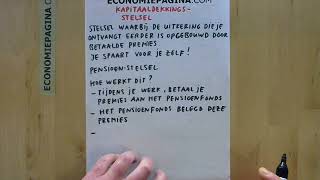 ECONOMIEPAGINA.COM
KAPITAALDEKKINGS-
STELSEL
STELSEL WAARBIJ DE UITKERING DIE JE
ONTVANGT EERDER IS OPGEBOUWD DOOR
BETAALDE PREMIES
JE SPAART VOOR JE ZELF!
PENSIOEN-STELSEL
HOE WERKT DIT?
- TIJDENS JE WERK, BETAAL JE
PREMIES AAN HET PENSIOENFONDS
- HET PENSIOENFONDS BELEGD DEZE
PREMIES
-
ECONOMIEPAGINA